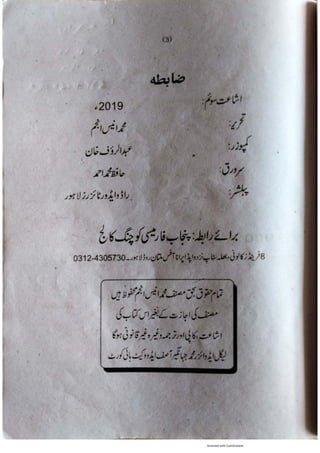 (3)
ضابطہ
اشاعت سوئم: 2019ء
تحریر: محمد انیس انجم
کمپوزر: عبدالرؤف خان
سرورق: حافظ محمد احمد
پبلشر: راڈو ایڈورٹائزرز لاہور
برائے رابطہ: پنجاب فارمیسی کوچنگ کالج
8 فرینڈز کالونی، بھلہ سٹاپ نزد واپڈا پرانا آفس ملتان روڈ لاہور۔ 0312-4305730
تمام حقوق بحق مصنف محمد انیس انجم محفوظ ہیں
مصنف کی اجازت کے بغیر اس کتاب کی
اشاعت، کاپی اور ترجمہ وغیرہ غیر قانونی ہوگا
لیگل ایڈوائزر محمد جہانگیر آصف ایڈووکیٹ ہائی کورٹ
Scanned with CamScanner